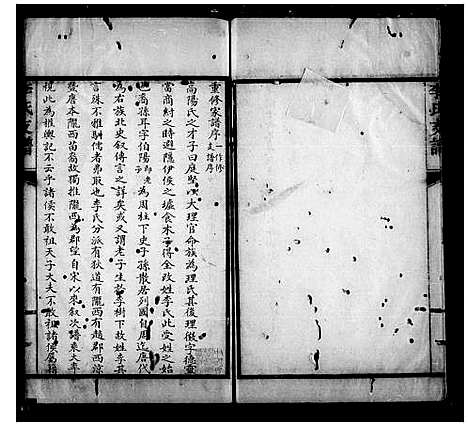 重修家譜序 一作修支譜序
高陽氏之才子曰庭堅大理官命族為理氏其後理徵字德靈
當商紂之時避隱伊侯之墟食木子得全改姓李氏此受姓之始
也裔孫耳字伯陽為周柱下史子孫散居列國自周迄唐代
為右族北史敘傳言之詳矣或又謂老子生於李樹下故姓李其
言殊不雅馴儒者弗取也李氏分派有狄道有隴西有趙郡西涼
唐本隴西苗裔故獨推隴西為郡望自宋以來敘次譜系大率
視此為推輿記不云乎諸侯不敢祖天子大夫不敢祖諸侯